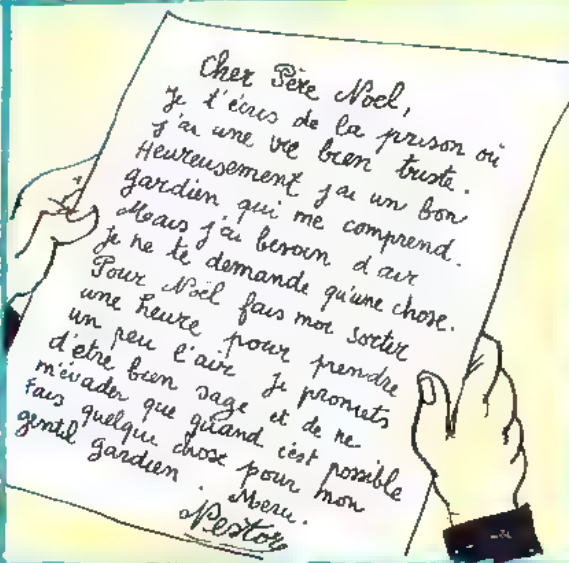 Cher Père Noel,
je t'écris de la prison où
j'ai une vie bien triste.
Heureusement j'ai un bon
gardien qui me comprend.
Mais j'ai besoin d'air
je ne te demande qu'une chose.
Pour Noël fais moi sortir
une heure pour prendre
un peu l'air je promets
d'etre bien sage et de ne
m'évader que quand c'est possible
Fais quelque chose pour mon
gentil gardien. Merci.
Nestor